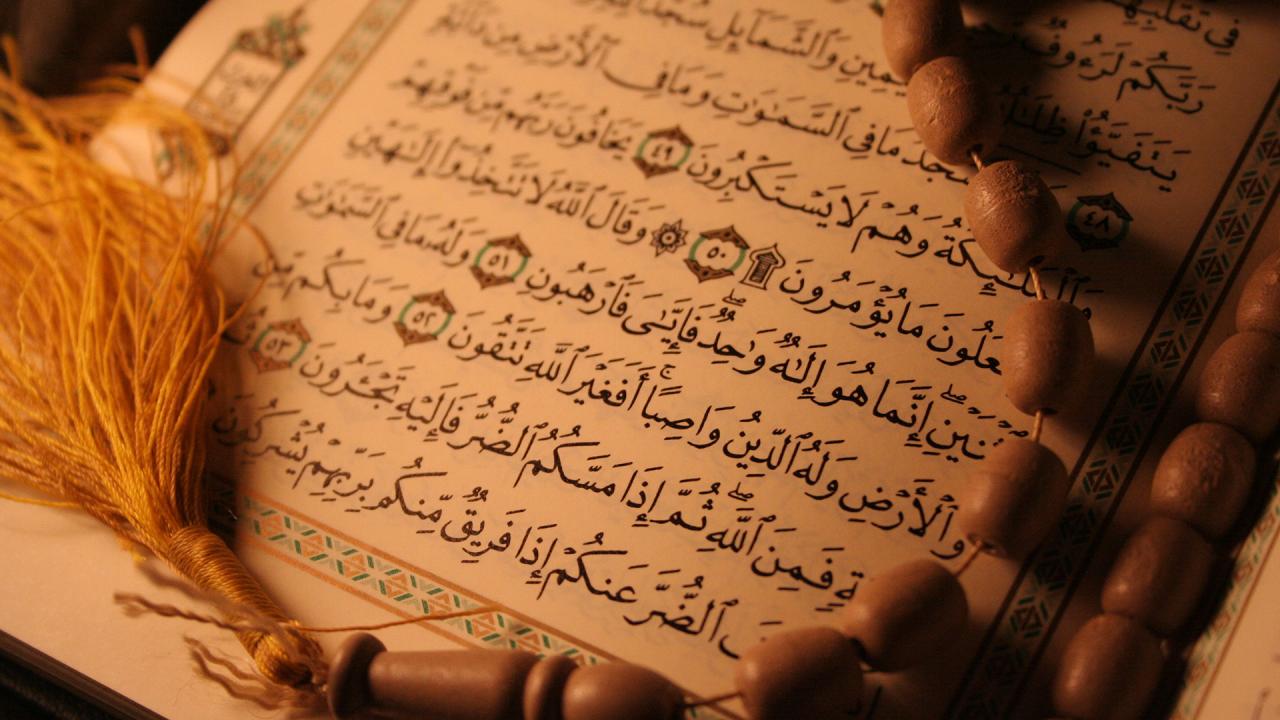 فِى تَقَلُّبِهِمْ
رَبَّكُمْ لَرَءُوفٌ
يَتَفَيَّؤُا۟ ظِلَـٰلُهُۥ ٱلْيَمِينِ وَٱلشَّمَآئِلِ سُجَّدًا
٤٨ يَسْجُدُ مَا فِى ٱلسَّمَـٰوَٰتِ وَمَا فِى ٱلْأَرْضِ مِن دَآبَّةٍ
وَٱلْمَلَـٰٓئِكَةُ وَهُمْ لَا يَسْتَكْبِرُونَ ٤٩ يَخَافُونَ رَبَّهُم مِّن فَوْقِهِمْ
عَلُونَ مَا يُؤْمَرُونَ ۩ ٥٠ ۞ وَقَالَ ٱللَّهُ لَا تَتَّخِذُوٓا۟ إِلَـٰهَيْنِ
ثْنَيْنِ ۖ إِنَّمَا هُوَ إِلَـٰهٌ وَٰحِدٌ ۖ فَإِيَّـٰىَ فَٱرْهَبُونِ ٥١ وَلَهُۥ مَا فِى ٱلسَّمَـٰوَٰتِ
وَٱلْأَرْضِ وَلَهُ ٱلدِّينُ وَاصِبًا ۚ أَفَغَيْرَ ٱللَّهِ تَتَّقُونَ ٥٢ وَمَا بِكُم مِّن
ةٍ فَمِنَ ٱللَّهِ ۖ ثُمَّ إِذَا مَسَّكُمُ ٱلضُّرُّ فَإِلَيْهِ تَجْـَٔرُونَ ٥٣ ثُمَّ
فَ ٱلضُّرَّ عَنكُمْ إِذَا فَرِيقٌ مِّنكُم بِرَبِّهِمْ يُشْرِكُونَ